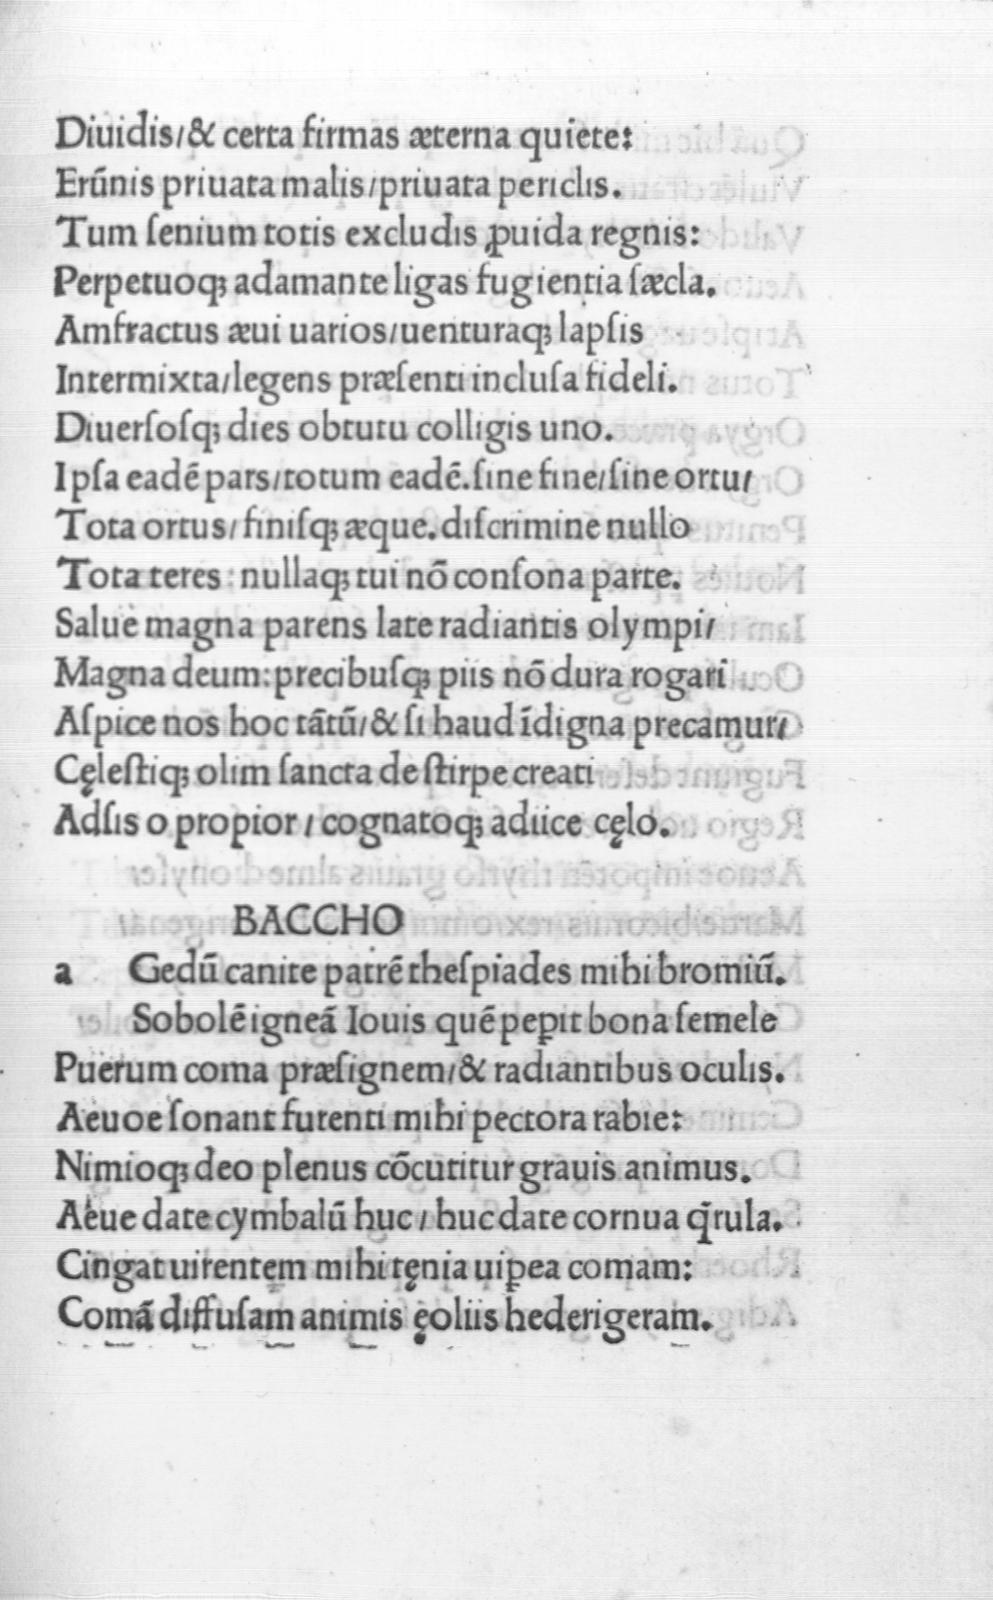 Diuidis/& certa firmas æterna quiete:
Erūnis priuata malis/priuata periclis.
Tum ſenium totis excludis ꝓuida regnis:
Perpetuoqꝫ adamante ligas fugientia ſæcla.
Amfractus æui uarios/uenturaqꝫ lapſis
Intermixta/legens præſenti incluſa fideli.
Diuerſoſqꝫ dies obtutu colligis uno.
Ipſa eadē pars/totum eadē.ſine fine/ſine ortu/
Tota ortus/finiſqꝫ æque.diſcrimine nullo
Tota teres: nullaqꝫ tui nō conſona parte.
Salue magna parens late radiantis olympi/
Magna deum:precibuſqꝫ piis nō dura rogari
Aſpice nos hoc tātū/& ſi haud īdigna precamur/
Cęleſtiqꝫ olim ſancta de ſtirpe creati
Adſis o propior/cognatoqꝫ adiice cęlo.
BACCHO
a Gedū canite patrē theſpiades mihi bromiū.
Sobolē igneā Iouis quē peꝑit bona ſemele
Puerum coma præſignem/& radiantibus oculis.
Aeuoe ſonant furenti mihi pectora rabie:
Nimioqꝫ deo plenus cōcutitur grauis animus.
Aeue date cymbalū huc/huc date cornua q̄rula.
Cingat uirentem mihi tęnia uiꝑea comam:
Comā diffuſam animis ęoliis hederigeram.